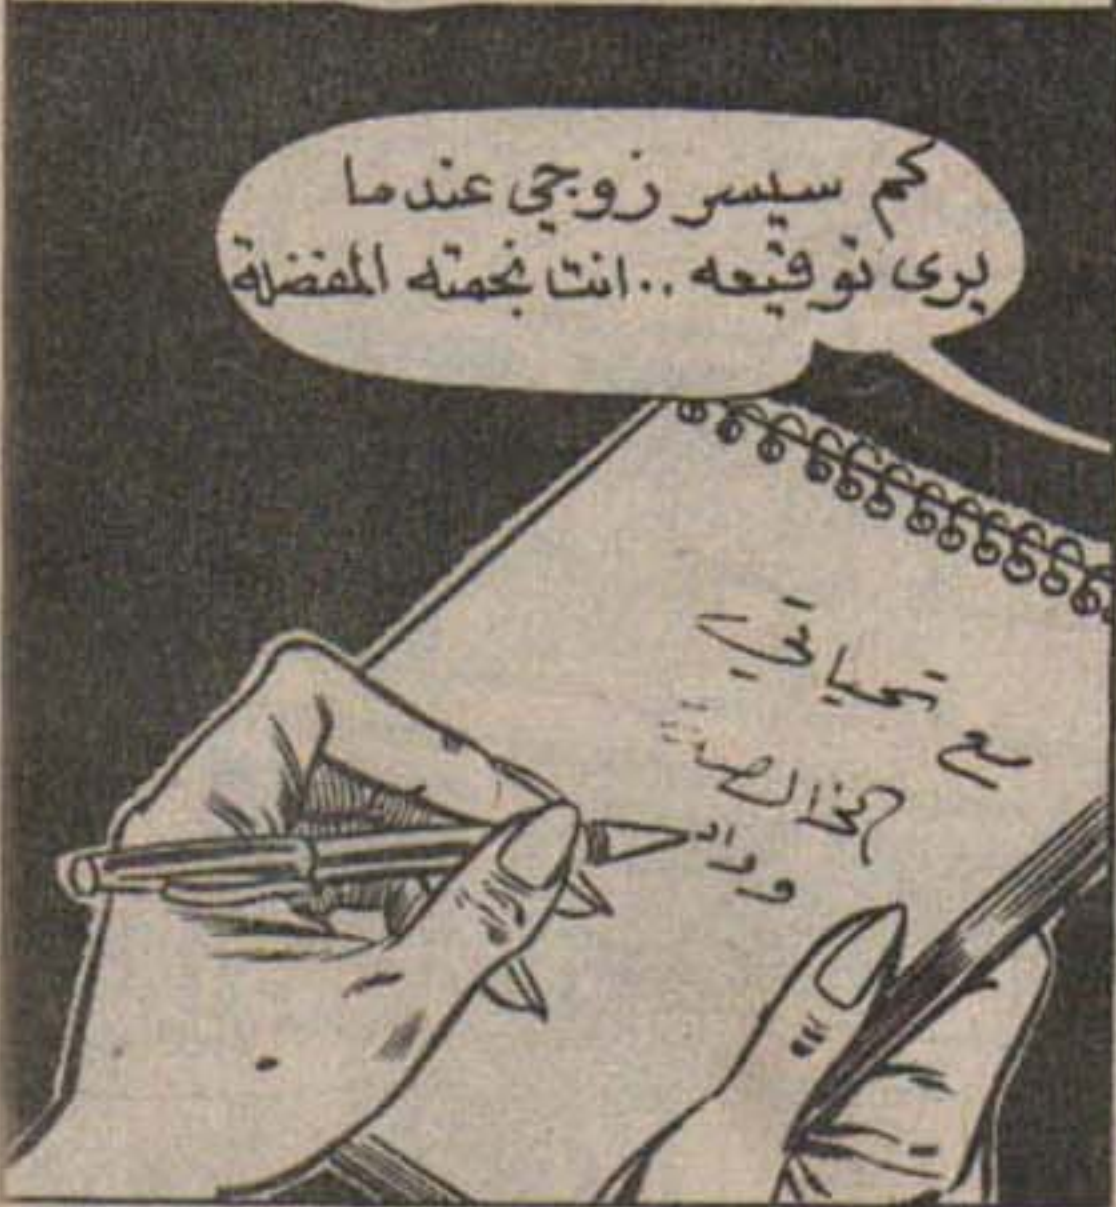 كم سيسر زوجي عندما
يرى توقيعه ..انت نجمته المفضلة
مع تحياتي
الخالصة
وداد